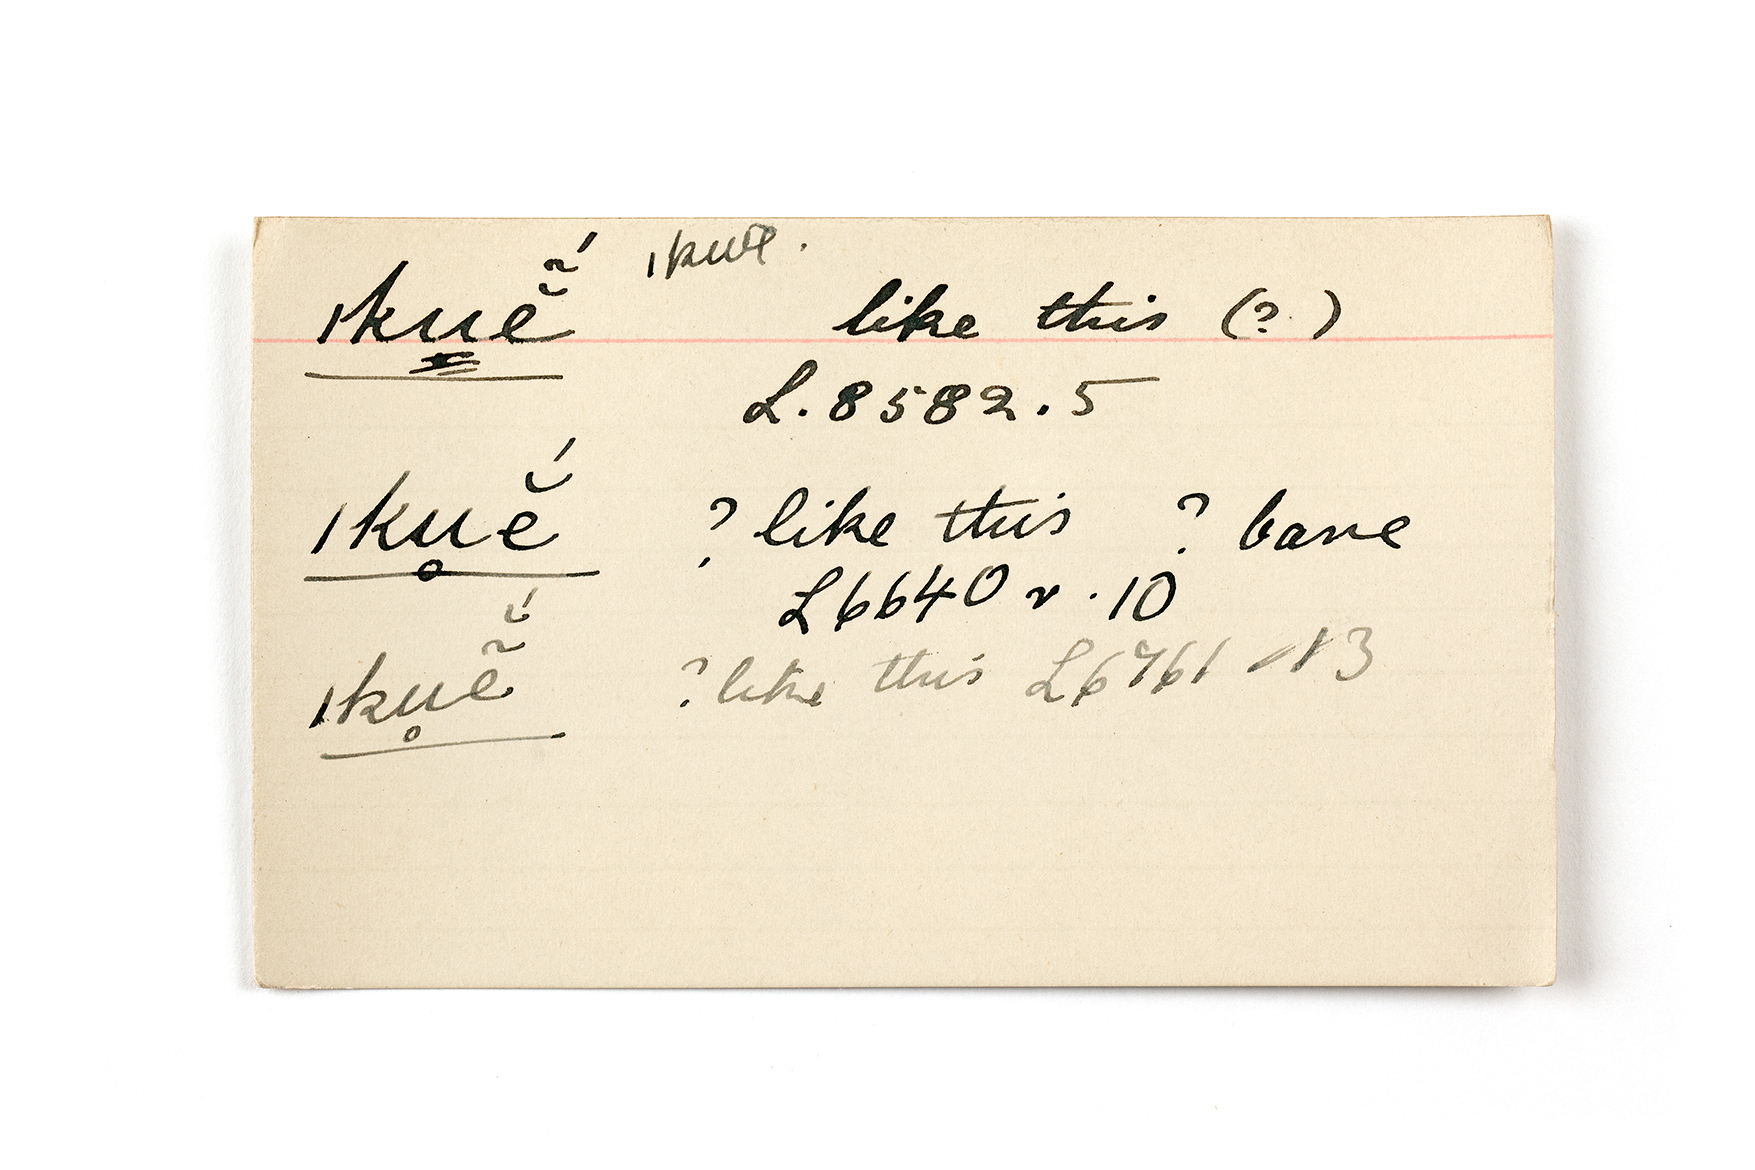 ıkuĕ̃́ ıkuĕ.
like this (?)
L. 8582.5
ıku̥ĕ́ ? like this ? bare
L6640 v. 10
ıku̥ẽ̆́ ? like this L6761 - 13